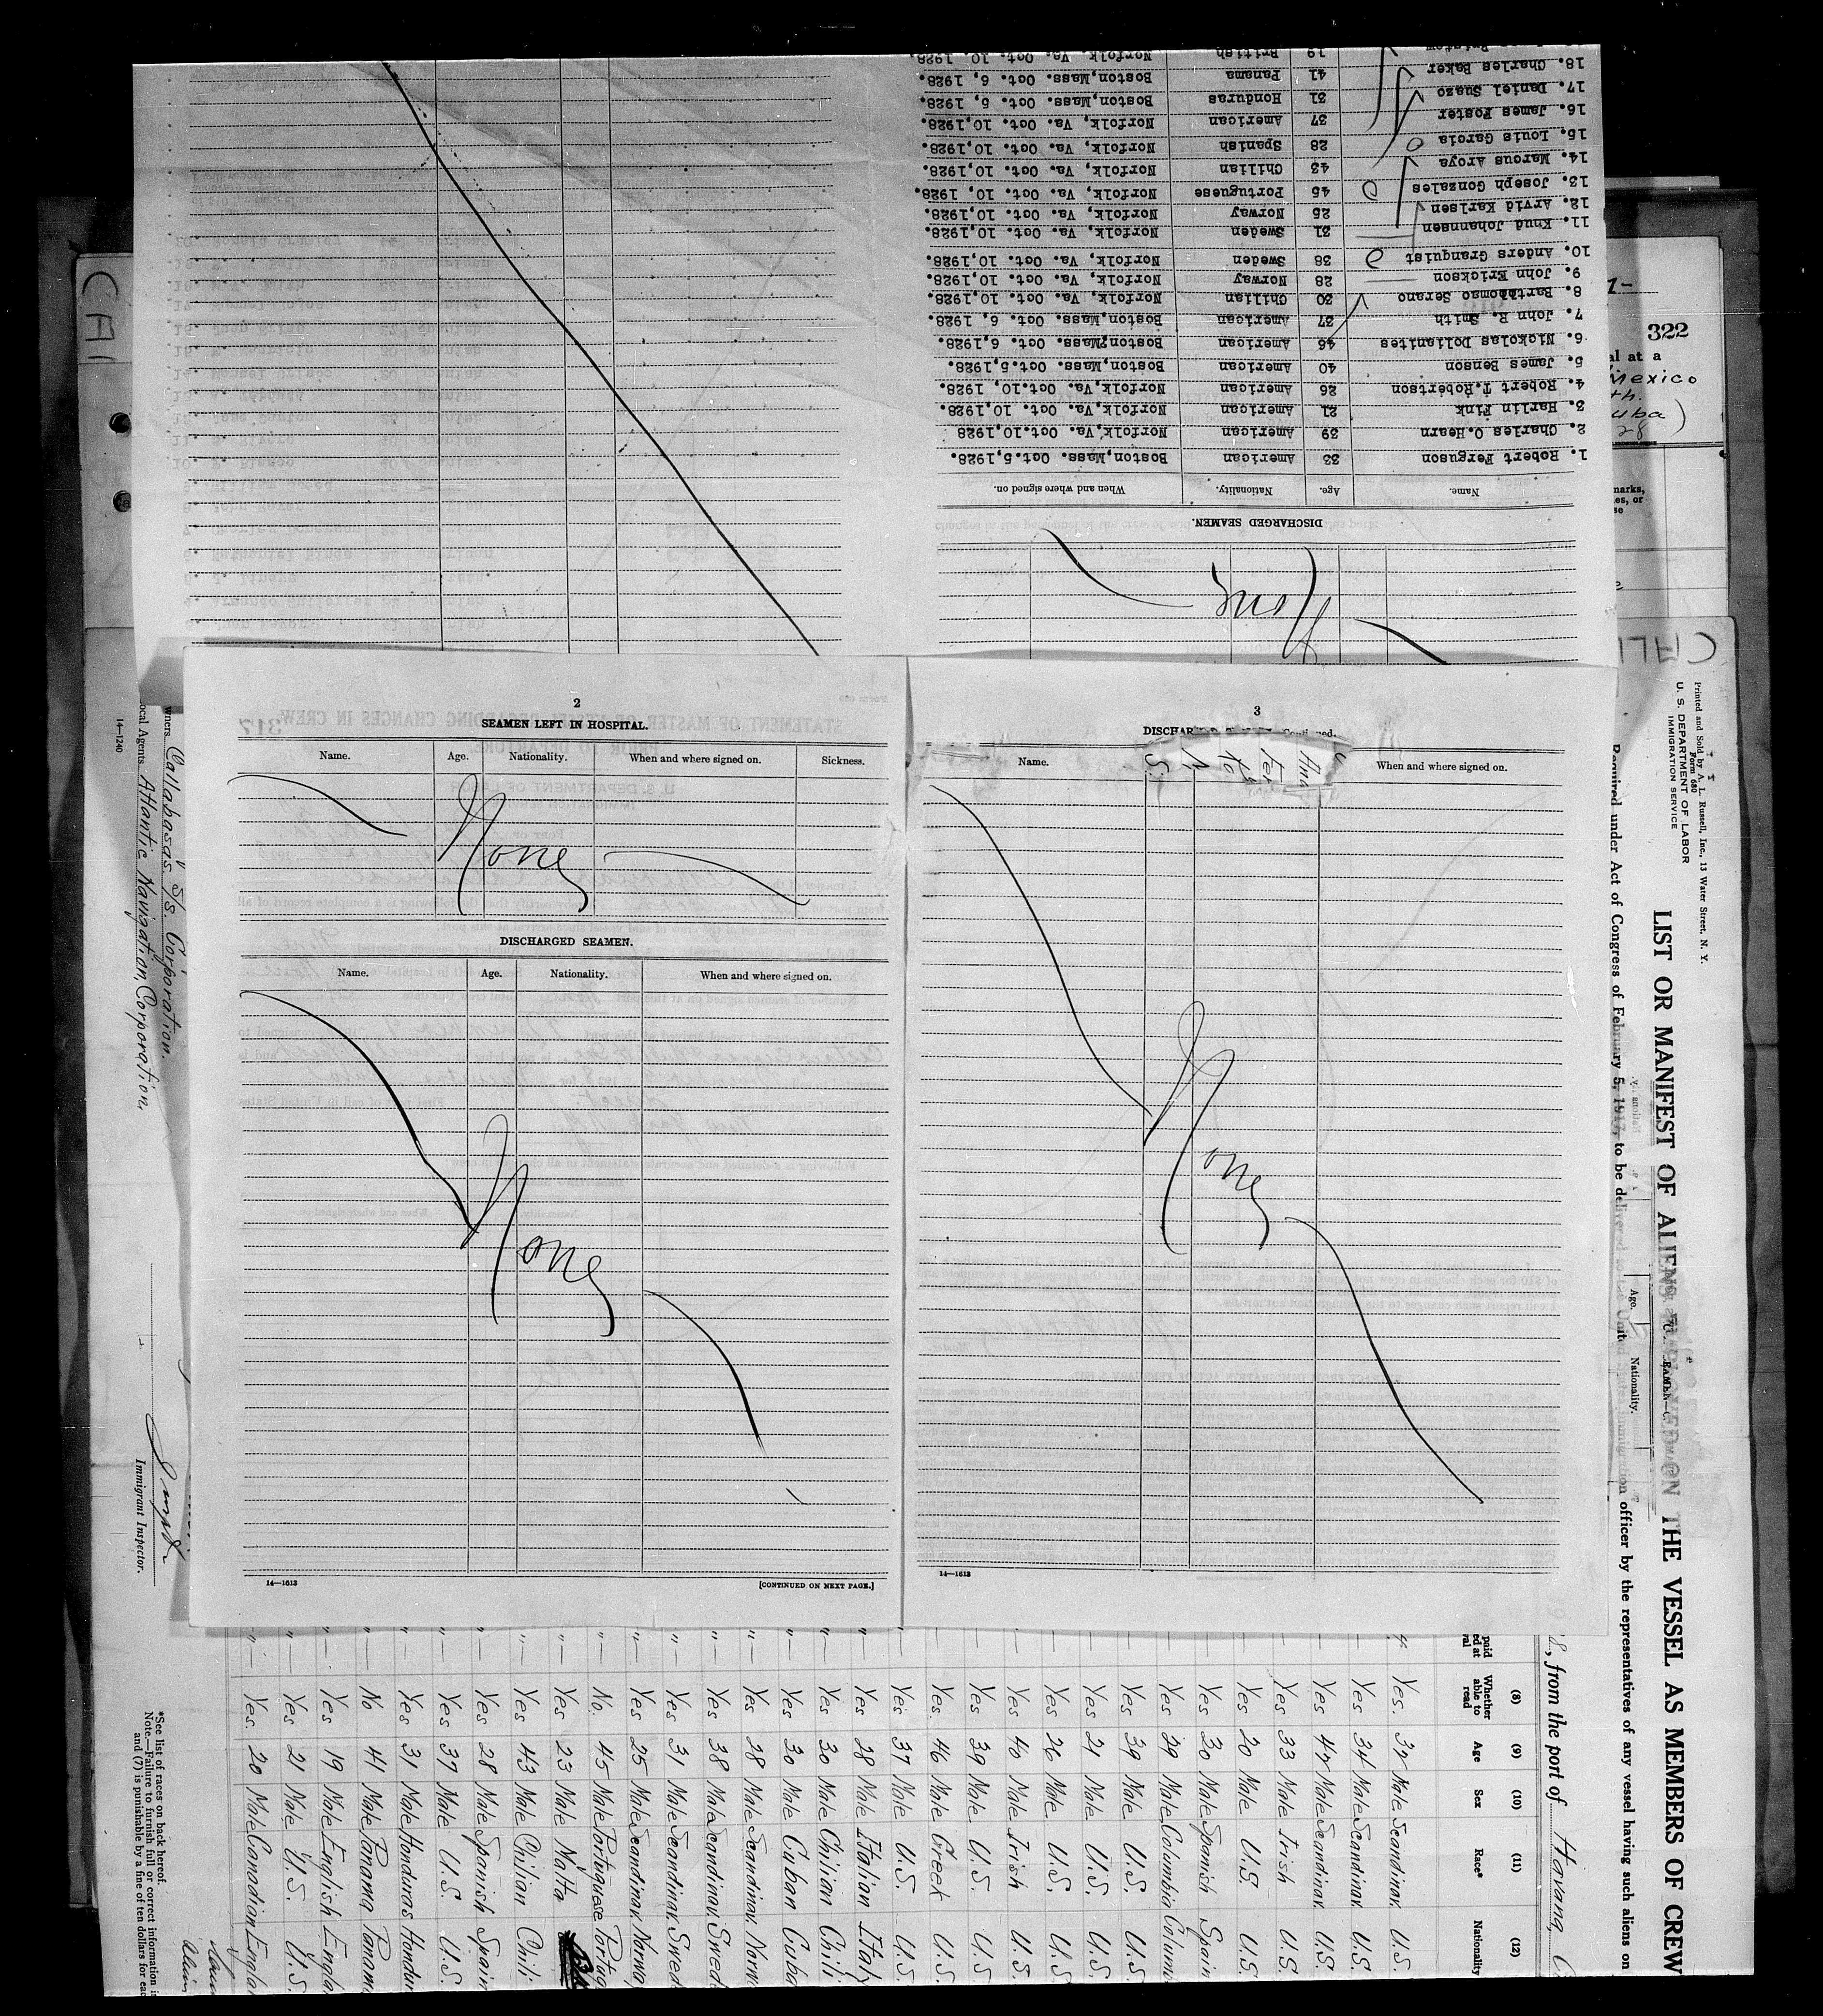 2
SEAMEN LEFT IN HOSPITAL.
Name. Age. Nationality. When and where signed on. Sickness.
None
DISCHARGED SEAMEN.
Name. Age. Nationality. When and where signed on.
None
14—1613 [CONTINUED ON NEXT PAGE.]
3
Name. When and where signed on.
None
14—1613
None
DISCHARGED SEAMEN.
Name. Age. Nationality. When and where signed on.
1. Robert Ferguson 33 American Boston,Mass. Oct.5,1928.
2. Charles O.Hearn 39 American Norfolk,Va. Oct.10,1928
3. Harlin Fink 21 American Norfolk, Va. Oct. 10,1928.
4. Robert T.Robertson 26 American Norfolk, Va. Oct.10, 1928.
5. James Benson 40 American Boston,Mass. Oct.5,1928.
6. Nickolas Dolianites 46 American Boston,Mass. Oct. 6,1928.
7. John R. Smith 37 American Boston,Mass. Oct. 6, 1928.
8. Bartholomao Serano 30 Chilian Norfolk, Va. Oct. 10,1928.
9. John Erickson 28 Norway Norfolk, Va. Oct. 10,1928.
10. Anders Granquist 38 Sweden Norfolk, Va. Oct. 10,1928.
11. Knud Johannsen 31 Sweden Norfolk, Va. Oct. 10,1928.
12. Arvid Karlsen 25 Norway Norfolk, Va. Oct. 10,1928.
13. Joseph Gonzales 45 Portuguese Norfolk, Va. Oct. 10, 1928.
14. Marcus Aroya 43 Chilian Norfolk, Va. Oct. 10,1928.
15. Louis Garcia 28 Spanish Norfolk, Va. Oct. 10,1928.
16. James Foster 37 American Norfolk, Va. Oct. 10,1928.
17. Daniel Suazo 31 Honduras Boston,Mass. Oct. 5, 1928.
18. Charles Baker 41 Panama Boston,Mass. Oct. 6, 1928.
19 British Norfolk, Va. Oct. 10, 1928.
322
al at a
Mexico
th.
uba)
28
marks,
es, or
se
Printed and Sold by A. L. Russell, Inc., 13 Water Street, N. Y.
Form 680
U. S. DEPARTMENT OF LABOR
IMMIGRATION SERVICE
LIST OR MANIFEST OF ALIENS EMPLOYED ON THE VESSEL AS MEMBERS OF CREW
Required under Act of Congress of February 5, 1917, to be delivered to the United States immigration officer by the representatives of any vessel having such aliens on
8, from the port of Havana, C
(8) (9) (10) (11) (12)
Whether able to read Age Sex Race* Nationality
Yes. 32 Male Scandinav. U.S.
Yes 34 Male Scandinav. U.S.
Yes 47 Male Scandinav. U.S.
Yes 33 Male Irish U.S.
Yes 20 Male U.S. U.S.
Yes 30 Male Spanish Spain
Yes 29 Male Columbia Colum
Yes 39 Male U.S. U.S.
Yes 21 Male U.S. U.S.
Yes 26 Male U.S. U.S.
Yes 40 Male Irish U.S.
Yes 39 Male U.S. U.S
Yes. 46 Male Greek U.S.
Yes 37 Male U.S. U.S.
Yes 28 Male Italian Italy
Yes 30 Male Chilian Chili
Yes 30 Male Cuban Cuba
Yes 28 Male Scandinav. Norw
Yes 38 Male Scandinav. Swed
Yes 31 Male Scandinav. Swed
Yes 25 Male Scandinav. Norwa
No. 45 Male Portuguese Portug
Yes 23 Male Malta
Yes 43 Male Chilian Chili
Yes 28 Male Spanish Spain
Yes 37 Male U.S. U.S.
Yes 31 Male Honduras Hondur
No 41 Male Panama Panam
Yes 19 Male English Engla
Yes 21 Male U.S. U.S.
Yes. 20 Male Canadian Englan
wners Callabasas S/S. Corporation.
ocal Agents Atlantic Navigation Corporation.
14—1240
Immigrant Inspector.
*See list of races on back hereof.
Note.—Failure to furnish full or correct information i
and (7) is punishable by a fine of ten dollars for eac